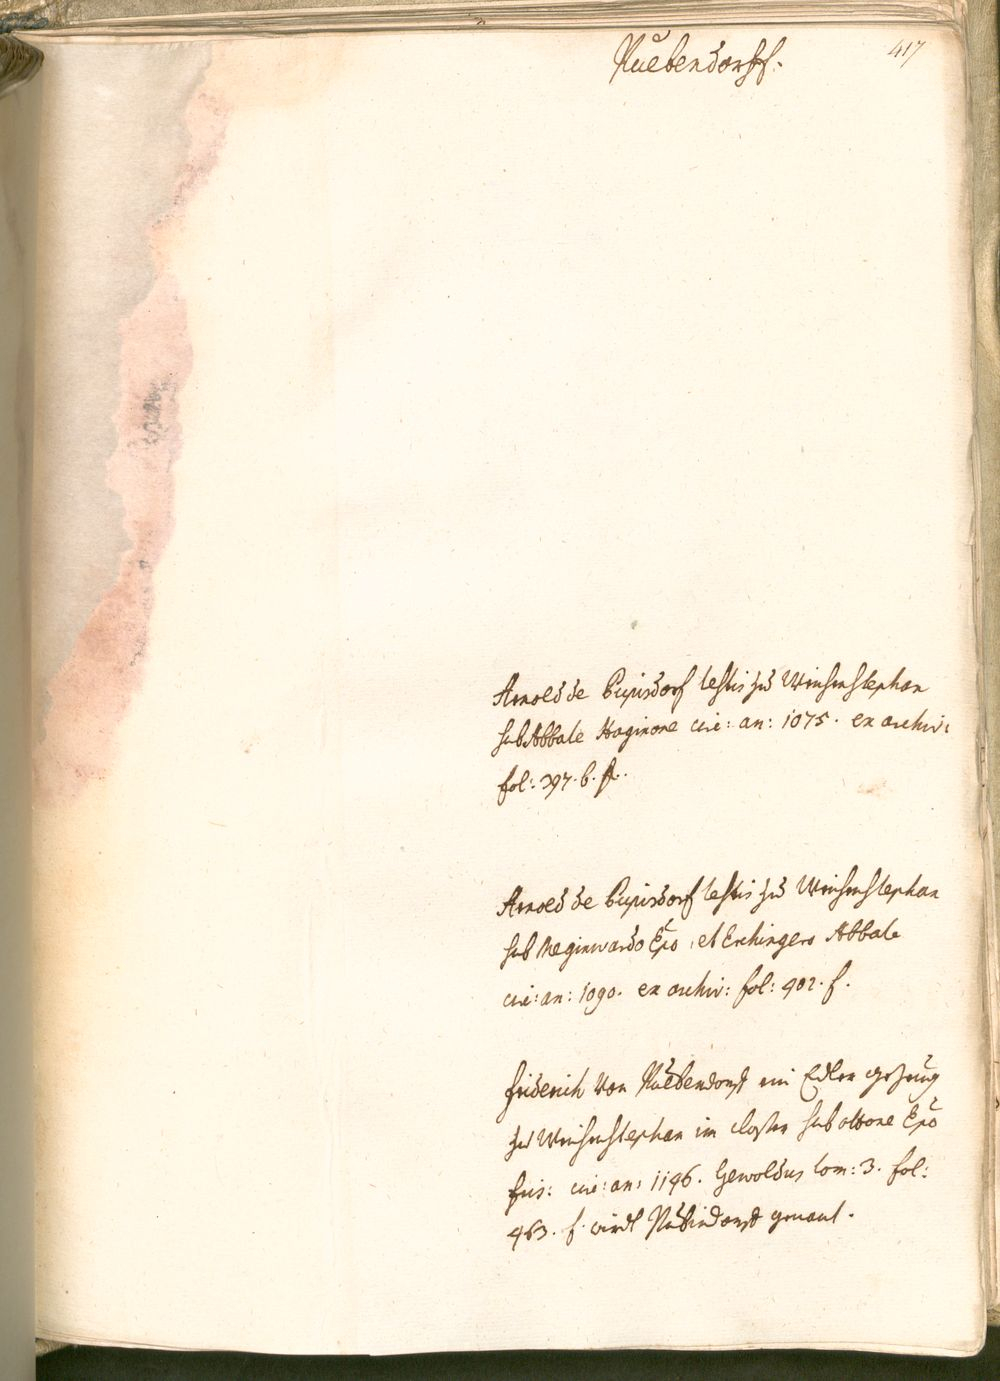 417
Puebendorff.
Arnold de Pupisdorf testis zu Weihenstephan
sub Abbate Haginone circ: an: 1075. ex archiv:
fol: 397. b. f.
Arnold de Pupisdorf testis zu Weihenstephan
sub Meginwardo Epo, et Erchingero Abbate
circ: an: 1090. ex archiv: fol: 402. f.
friderich von Puebendorff ein Edler gezeug
zu Weihenstephan im closter sub ottone Epo
fris: circ: an: 1146. Gewoldus tom: 3. fol:
463. f. wirdt Pubindorff genant.